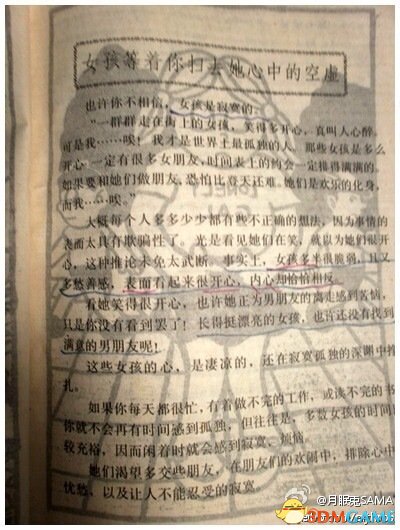 女孩等着你扫去她心中的空虚
也许你不相信，女孩是寂寞的。
“一群群走在街上的女孩，笑得多开心，真叫人心醉。
可是我……唉！我才是世界上最孤独的人，那些女孩是多么
开心，一定有很多女朋友，时间表上的约会一定排得满满的。
如果要和她们做朋友，恐怕比登天还难。她们是欢乐的化身，
而我……唉。
大概每个人多多少少都有些不正确的想法，因为事情的
表面太具有欺骗性了。光是看见她们在笑，就以为她们很开
心，这种推论未免太武断。事实上，女孩多半很脆弱，且又
多愁善感，表面看起来很开心，内心却恰恰相反。
看她笑得很开心，也许她正为男朋友的离走感到苦恼，
只是你没有看到罢了！长得挺漂亮的女孩，也许还没有找到
满意的男朋友呢！
这些女孩的心，是凄凉的，还在寂寞孤独的深渊中挣
扎。
如果你每天都很忙，有着做不完的工作，或读不完的书
你就不会再有时间感到孤独，但往往是，多数女孩的时间
较充裕，因而闲着时就会感到寂寞、烦恼。
她们渴望多交些朋友，在朋友们的欢闹中，排除心中
忧愁，以及让人不能忍受的寂寞。
@月眠兎SAMA
3DMGAME